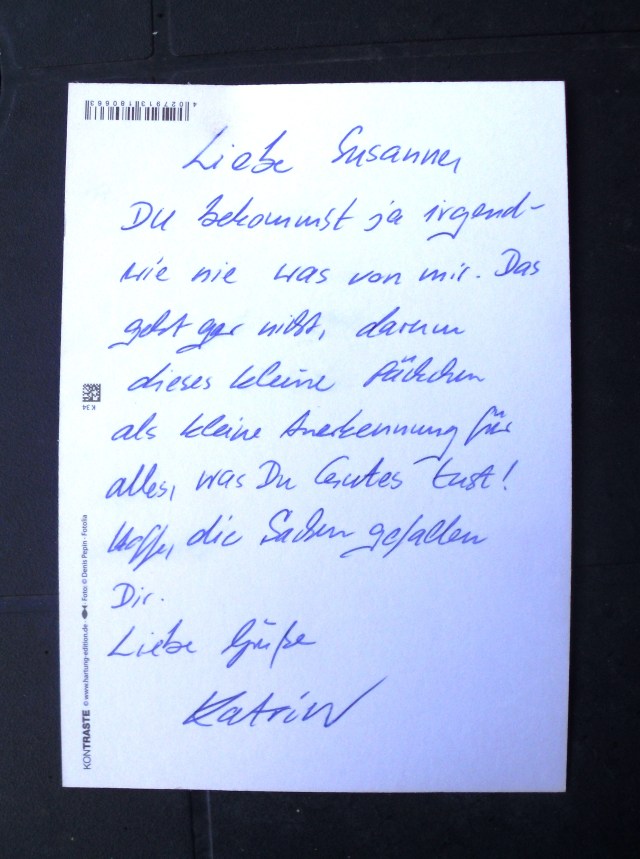 4 027913 180663
Liebe Susanne,
Du bekommst ja irgend-
wie nie was von mir. Das
geht gar nicht, darum
dieses kleine Päckchen
als kleine Anerkennung für
alles, was Du Gutes tust!
Hoffe, die Sachen gefallen
Dir.
Liebe Grüße
Katrin
K 34
KONTRASTE © www.hartung-edition.de · Foto: © Denis Pepin - Fotolia